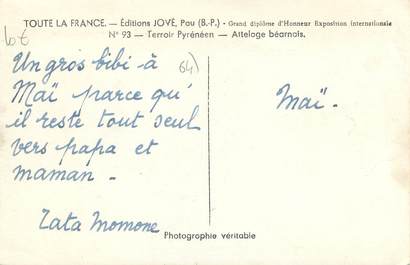 TOUTE LA FRANCE. — Éditions JOVÉ, Pau (B.-P.) - Grand diplôme d'Honneur Exposition internationale
N° 93 — Terroir Pyrénéen — Attelage béarnais.
lot
64)
Un gros bibi à
Maï parce qu'
il reste tout seul
vers papa et
maman -
Tata Momone
Maï -
Photographie véritable